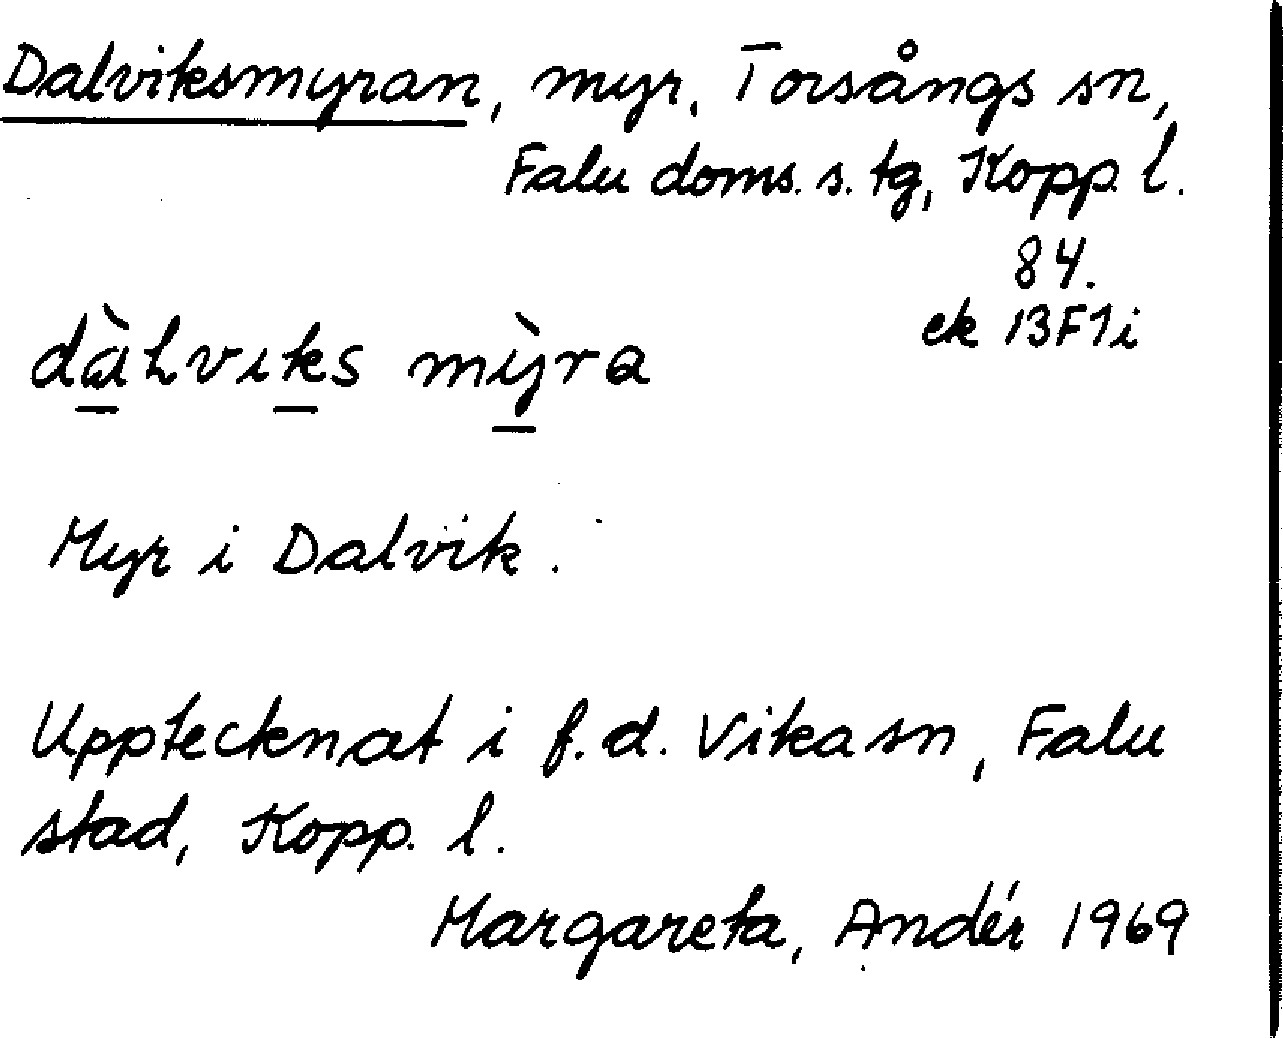 Dalviksmyran, myr, Torsångs sn,
Falu doms. s. tg, Kopp. l.
84.
ek 13F1i
dàLvıks mỳra
Myr i Dalvik.
Upptecknat i f.d. Vika sn, Falu
stad, Kopp. l.
Margareta, Andér 1969